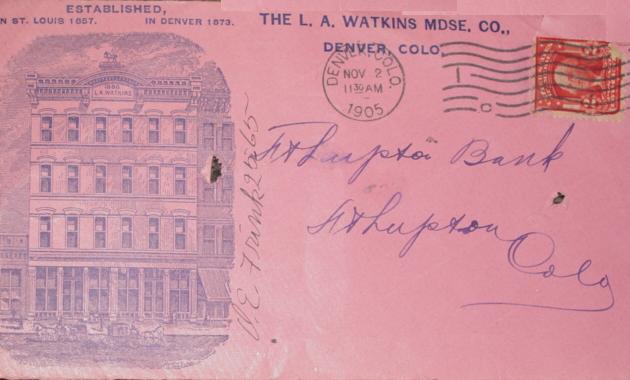 ESTABLISHED,
N ST. LOUIS 1857. IN DENVER 1873.
THE L. A. WATKINS MDSE. CO.,
DENVER, COLO.
DENVER, COLO.
NOV 2
11 30 AM
1905
1
C
1880
L.A. WATKINS
Ft Lupton Bank
Ft Lupton
Colo
O.E. Frink